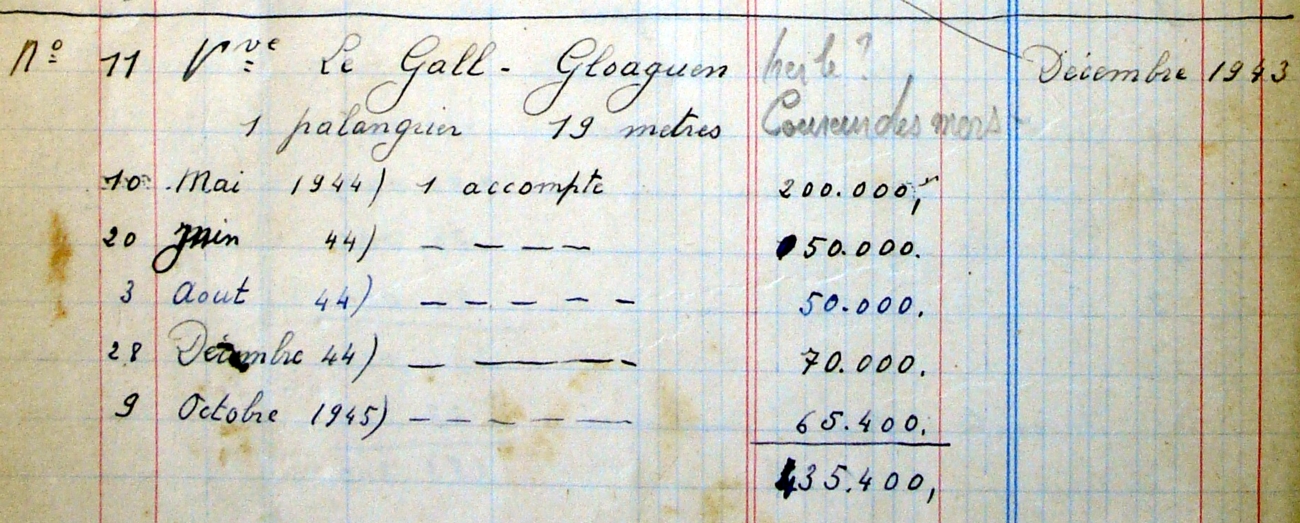 Nº 11 Vve Le Gall - Gloaguen perle ? Décembre 1943
1 palangrier 19 metres Coureur des mers
10 Mai 1944) 1 accompte 200.000,
20 Juin 44) — — — — 50.000.
3 Aout 44) — — — — — 50.000.
28 Décembre 44) — ——— - 70.000.
9 Octobre 1945) — — — — — 65.400.
435.400,